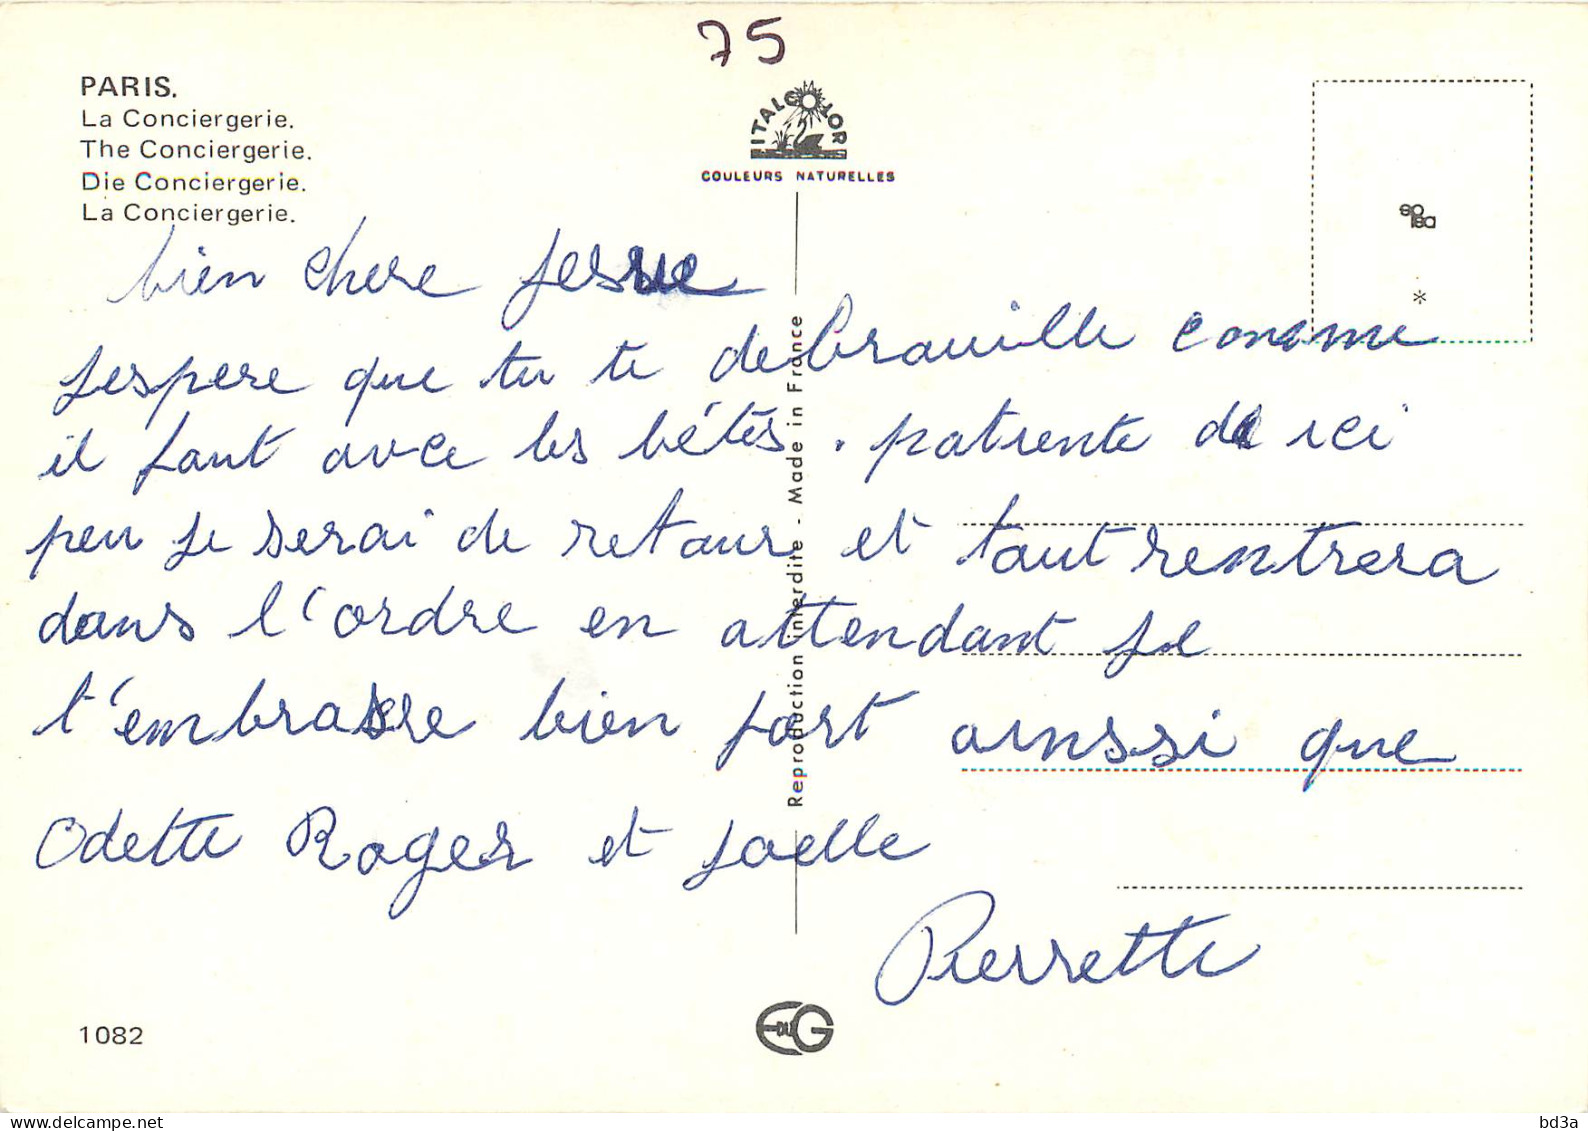 75
PARIS.
La Conciergerie.
The Conciergerie.
Die Conciergerie.
La Conciergerie.
ITALCOLOR
COULEURS NATURELLES
bien chere
Jespere que tu te debrouille comme
il faut avec les bétes. patiente di ici
peu je serai de retour et tout rentrera
dans l'ordre en attendant je
t'embrasse bien fort ainssi que
Odette Roger et Joelle
Pierrette
Reproduction interdite - Made in France
*
1082
EDUG
delcampe.net
bd3a